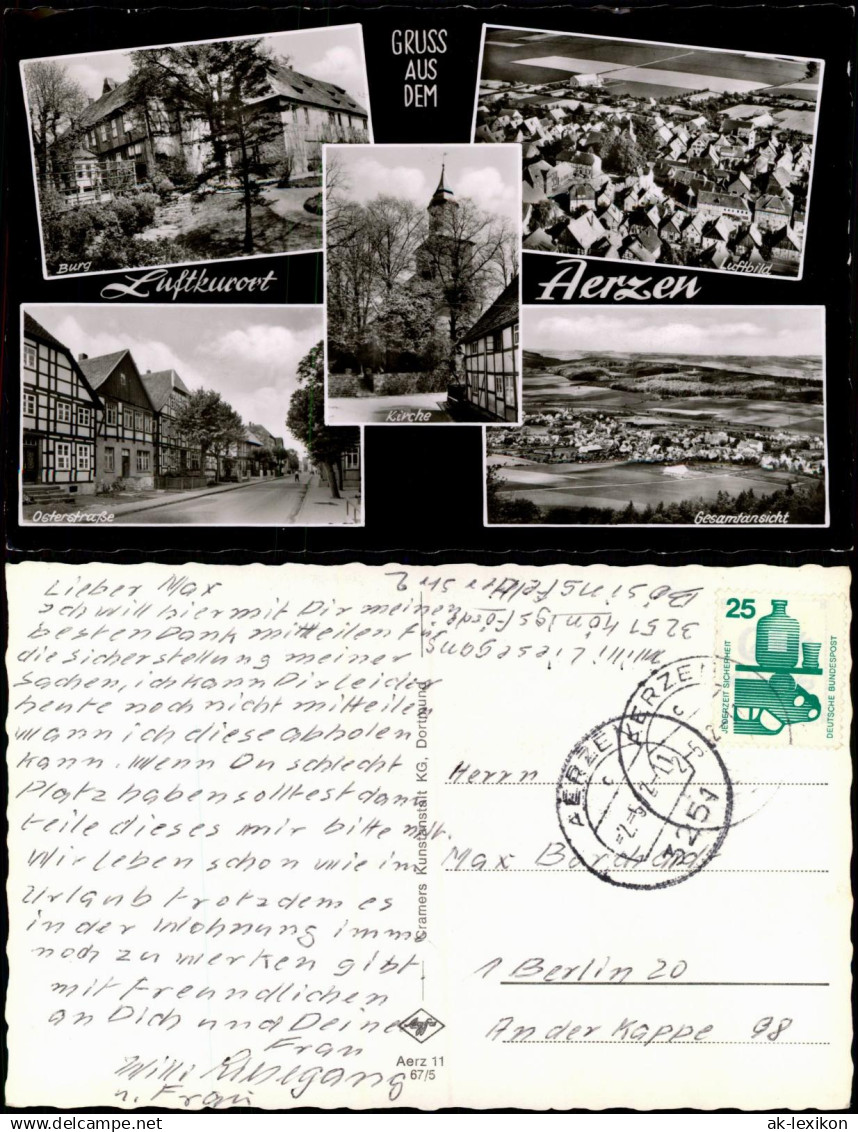 GRUSS
AUS
DEM
Burg
Luftkurort
Luftbild
Aerzen
Kirche
Osterstraße
Gesamtansicht
Lieber Max
Ich will hiermit Dir meinen
besten Dank mitteilen für
die sicherstellung meine
Sachen, ich kann Dir leider
heute noch nicht mitteilen
wann ich diese abholen
kann. Wenn Du schlecht
Platz haben solltest dann
teile dieses mir bitte mit.
Wir leben schon wie im
Urlaub trotzdem es
in der Wohnung imme
noch zu werken gibt
mit Freundlichen
an Dich und Deine
Frau
Willi Liesegang
u. Frau
Willi Liesegang
3251 Königsförde
Bösingfelder Str 2
25
JEDERZEIT SICHERHEIT
DEUTSCHE BUNDESPOST
AERZEN
c
3251
AERZEN
c
Herrn
Max
1 Berlin 20
An der Kappe 98
Cramers Kunstanstalt KG, Dortmund
Agfa
Aerz 11
67/5
ak-lexikon.com